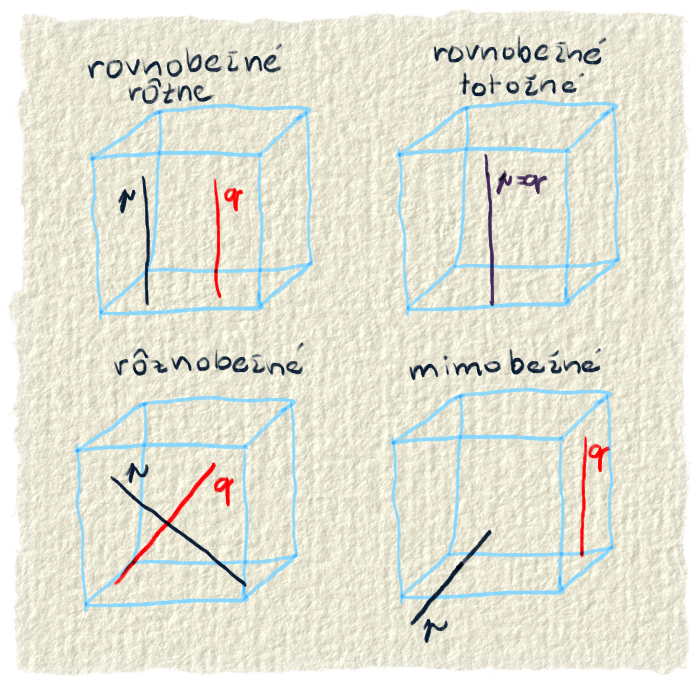 rovnobežné
rôzne
rovnobežné
totožné
p
q
p=q
rôznobežné
mimobežné
p
q
q
p